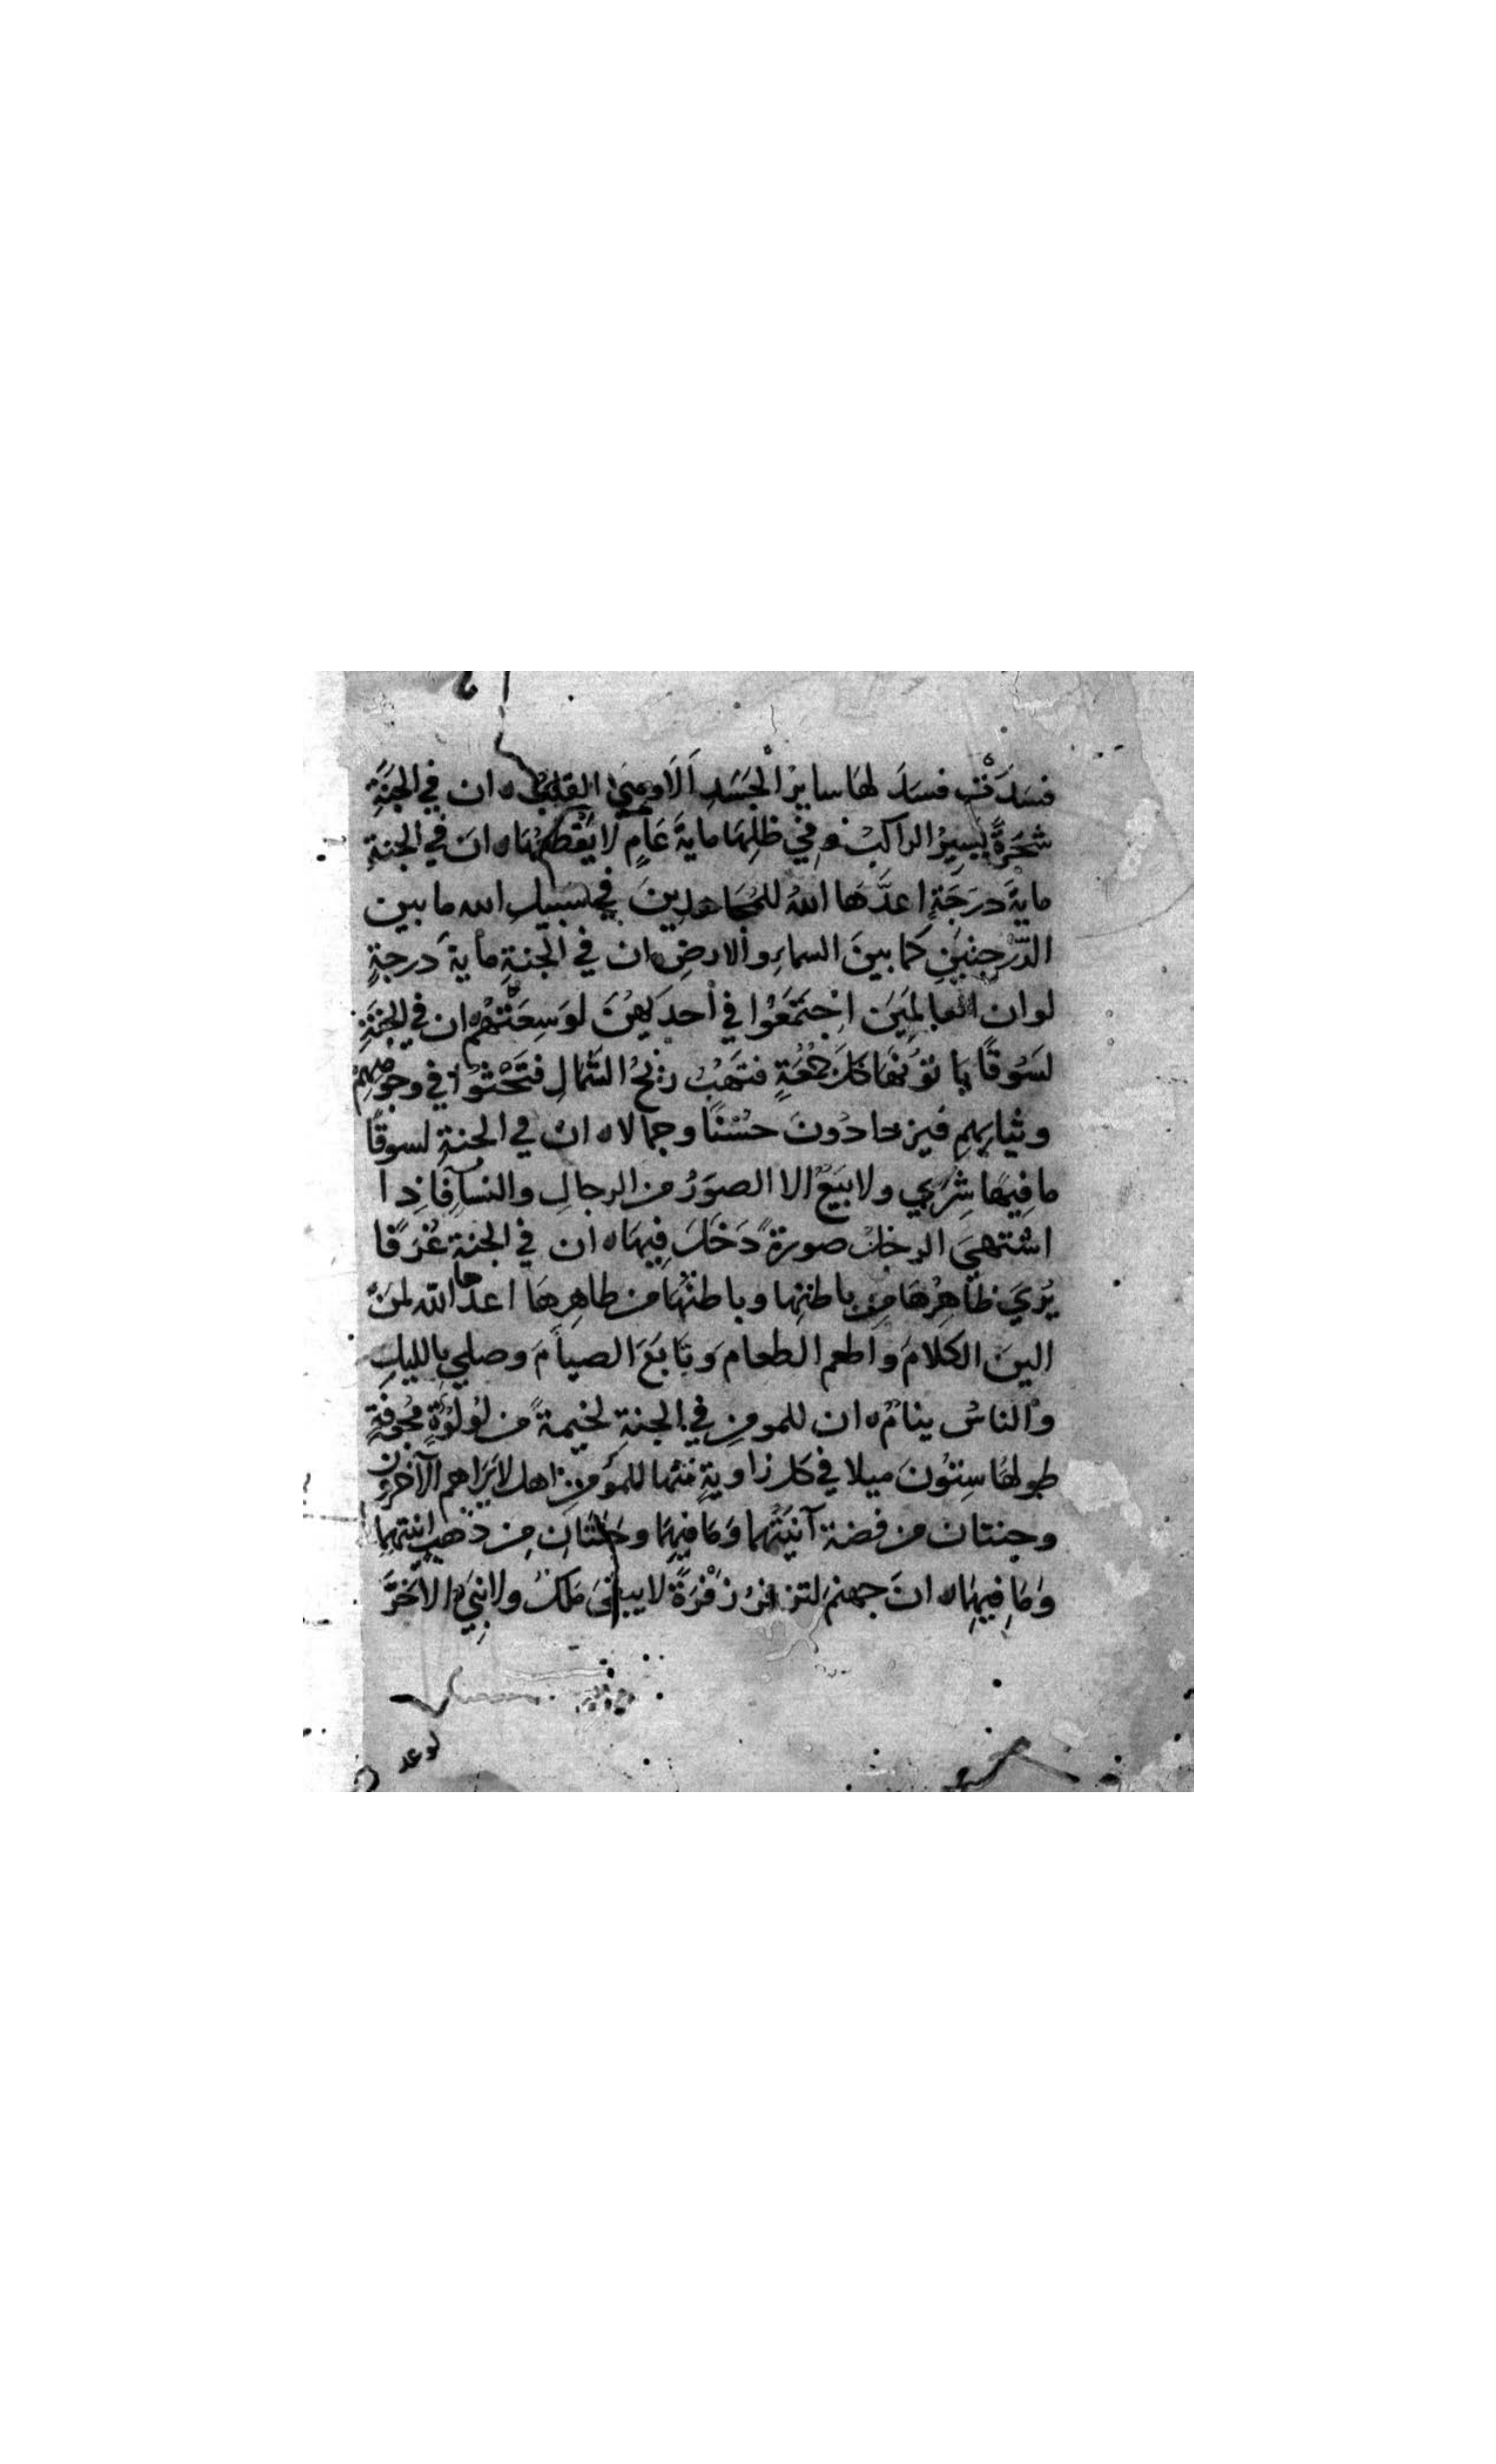 فسَدَتْ فسَدَ لهَا سايرُ الْجَسَدِ اَلَا وهيَ القلبُ ه ان في الجَنَّةِ
شجَرَةً يسِيرُ الراكبُ في ظلِهَا مايةَ عَامٍ لا يَقْطعُهَا ه انَ في الجنةِ
مايةَ درَجَةٍ اعدَّهَا اللهُ للمُجَاهدينَ في سبيلِ الله ما بين
الدّرجتينِ كما بينَ السماءِ والارضِ ه ان في الجنةِ ماية دَرجةٍ
لو ان العالمِينَ اجْتمَعُوا في احدَيهنَ لوَسِعَتْهُم ه ان في الجنَّةِ
لسُوقًا ياتونهَا كلَ جُمُعَةٍ فتهُبُ ريحُ الشَمالِ فتحْثوا في وجُوههِمْ
وثيابِهِم فيزدادُونَ حسْنًا وجمالا ه ان في الجنةِ لسوقًا
ما فيهَا شِرَي ولا بيَعٌ الا الصوَرُ من الرجالِ والنسآِ فاذا
اشتهيَ الرجلُ صورَةً دَخَلَ فِيهَا ه ان في الجنةِ غُرَفًا
يُرَيَ ظَاهِرُهَا مِن باطنِها وباطنُهَا من ظاهِرِهَا اعدّها الله لمَنْ
الينَ الكلامَ واطعم الطعام وتَابَعَ الصيامَ وصلي بالليلِ
والناسُ ينامُ ه ان للمومنِ في الجنةِ لخيمةً من لوُلوُةٍ مُجَوفَةٍ
طولهَا سِتوُنَ ميلا في كل زاويةٍ منْها للمؤمنِ اهل لا يَرَاهم الآخرون
وجنتان من فضة آنيَتُهما وَمَا فيهمَا وجَنتَانِ مِن ذهبٍ انيتهما
وَمَا فيهِمَا ه انَ جهنم لتزفرُ زفْرَةً لا يبقىَ مَلكٌ ولا نبيٌ الا خرَّ
لو عد